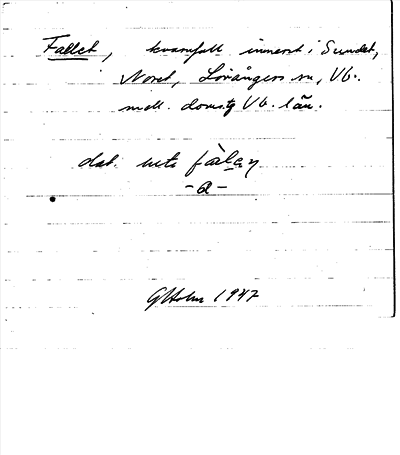 Fallet, kvarnfall innerst i Sundet,
Noret, Lövångers sn, Vb.
mell. domsg Vb. län.
dat. ute fàlen
-a-
GHolm 1947